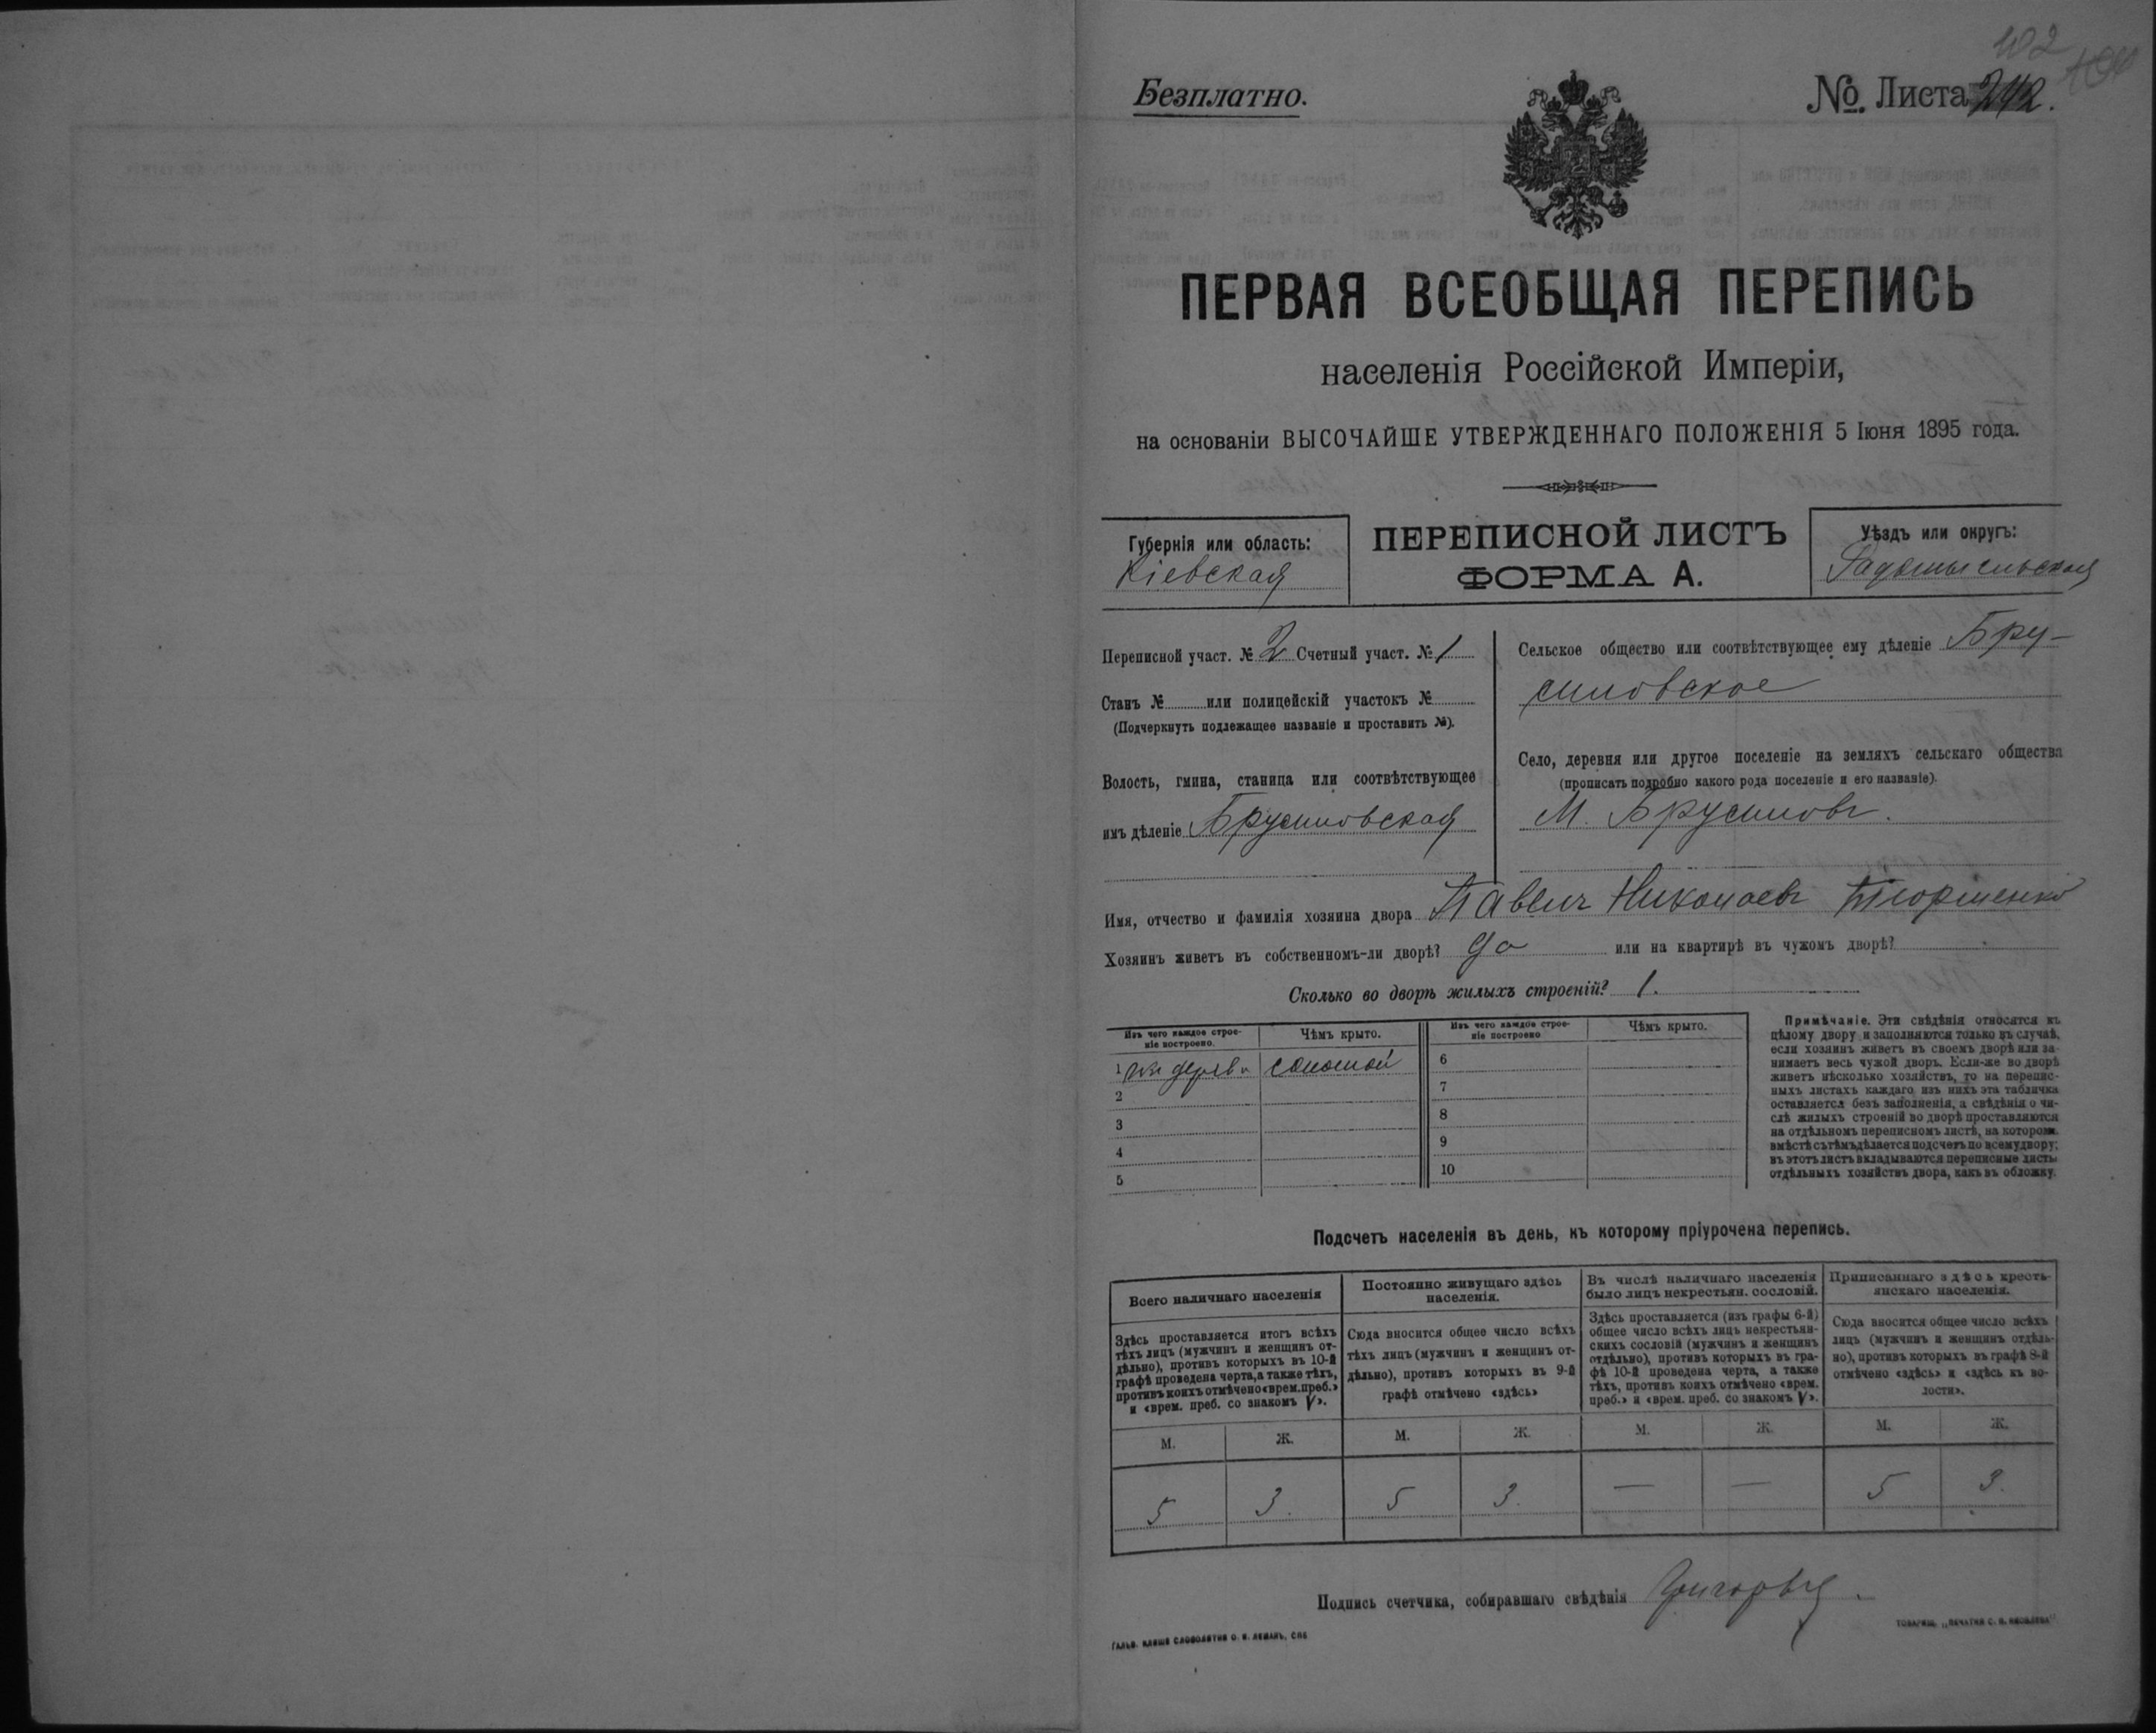 102
Безплатно.
№. Листа 242.
ПЕРВАЯ ВСЕОБЩАЯ ПЕРЕПИСЬ
населенія Россійской Имперіи,
на основаніи ВЫСОЧАЙШЕ УТВЕРЖДЕННАГО ПОЛОЖЕНІЯ 5 Іюня 1895 года.
Губернія или область:
Кіевская
ПЕРЕПИСНОЙ ЛИСТЪ
ФОРМА А.
Уѣздъ или округъ:
Радомысльская
Переписной участ. № 2 Счетный участ. № 1
Станъ № или полицейскій участокъ №
(Подчеркнуть подлежащее названіе и проставить №).
Волость, гмина, станица или соотвѣтствующее
имъ дѣленіе Брусиловская
Сельское общество или соотвѣтствующее ему дѣленіе Бру-
силовское
Село, деревня или другое поселеніе на земляхъ сельскаго общества
(прописать подробно какого рода поселеніе и его названіе).
М. Брусиловъ.
Имя, отчество и фамилія хозяина двора Павелъ Николаевъ
Хозяинъ живетъ въ собственномъ-ли дворѣ? да или на квартирѣ въ чужомъ дворѣ?
Сколько во дворѣ жилыхъ строеній? 1.
Изъ чего каждое строе-
ніе построено.
Чѣмъ крыто.
Изъ чего каждое строе-
ніе построено
Чѣмъ крыто.
1 изъ дерева соломой
2
3
4
5
6
7
8
9
10
Примѣчаніе. Эти свѣдѣнія относятся къ
цѣлому двору и заполняются только въ случаѣ,
если хозяинъ живетъ въ своемъ дворѣ или за-
нимаетъ весь чужой дворъ. Если-же во дворѣ
живетъ нѣсколько хозяйствъ, то на перепис-
ныхъ листахъ каждаго изъ нихъ эта табличка
оставляется безъ заполненія, а свѣдѣнія о чи-
слѣ жилыхъ строеній во дворѣ проставляются
на отдѣльномъ переписномъ листѣ, на которомъ
вмѣстѣ съ тѣмъ дѣлается подсчетъ по всему двору;
въ этотъ листъ вкладываются переписные листы
отдѣльныхъ хозяйствъ двора, какъ въ обложку.
Подсчетъ населенія въ день, къ которому пріурочена перепись.
Всего наличнаго населенія
Здѣсь проставляется итогъ всѣхъ
тѣхъ лицъ (мужчинъ и женщинъ от-
дѣльно), противъ которыхъ въ 10-й
графѣ проведена черта, а также тѣхъ,
противъ коихъ отмѣчено «врем. преб.»
и «врем. преб. со знакомъ V».
Постоянно живущаго здѣсь
населенія.
Сюда вносится общее число всѣхъ
тѣхъ лицъ (мужчинъ и женщинъ от-
дѣльно), противъ которыхъ въ 9-й
графѣ отмѣчено «здѣсь»
Въ числѣ наличнаго населенія
было лицъ некрестьян. сословій.
Здѣсь проставляется (изъ графы 6-й)
общее число всѣхъ лицъ некрестьян-
скихъ сословій (мужчинъ и женщинъ
отдѣльно), противъ которыхъ въ гра-
фѣ 10-й проведена черта, а также
тѣхъ, противъ коихъ отмѣчено «врем.
преб.» и «врем. преб. со знакомъ V».
Приписаннаго здѣсь кресть-
янскаго населенія.
Сюда вносится общее число всѣхъ
лицъ (мужчинъ и женщинъ отдѣль-
но), противъ которыхъ въ графѣ 8-й
отмѣчено «здѣсь» и «здѣсь къ во-
лости».
М. Ж. М. Ж. М. Ж. М. Ж.
5 3. 5 3. — — 5 3.
Подпись счетчика, собиравшаго свѣдѣнія
ГАЛЬВ. КЛИШЕ СЛОВОЛИТНИ О. И. ЛЕМАНЪ, СПБ
ТОВАРИЩ. „ПЕЧАТНЯ С. П. ЯКОВЛЕВА"